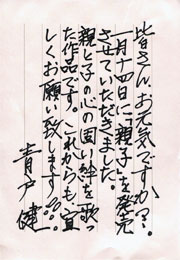 皆さん、お元気ですか?
一月十四日に「親子」を発売
させていただきました。
親と子の心の固い絆を歌っ
た作品です。これからも、宜
しくお願い致します。
青戸健